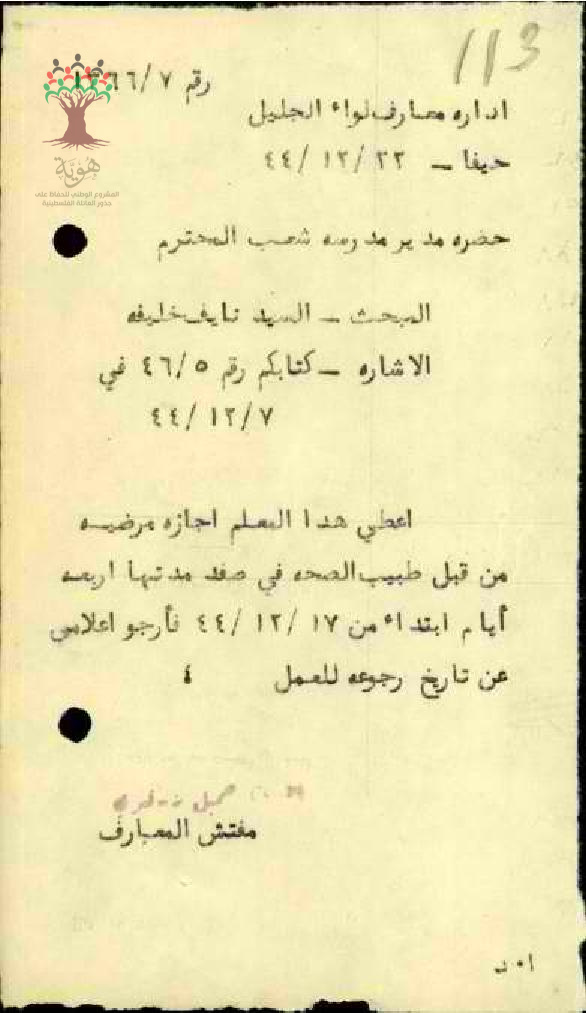 113
رقم ١٣٦٦/٧
اداره معارف لواء الجليل
حيفا – ٢٢ /١٢ /٤٤
هُوِيَّة
المشروع الوطني للحفاظ على
جذور العائلة الفلسطينية
حضره مدير مدرسه شعب المحترم
المبحث – السيد نايف خليفه
الاشاره – كتابكم رقم ٤٦/٥ في
٤٤ /١٢/٧
اعطي هذا المعلم اجازه مرضيه
من قبل طبيب الصحه في صفد مدتها اربعه
أيام ابتداء من ١٧ /١٢ /٤٤ فأرجو اعلامي
عن تاريخ رجوعه للعمل ٤
مفتش المعارف